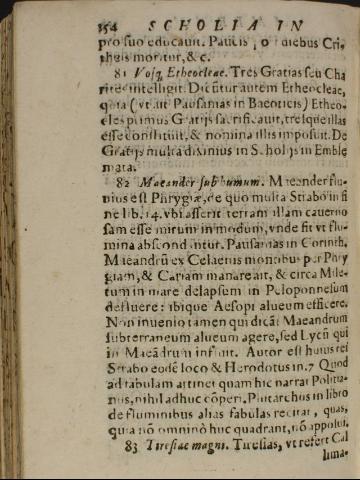 354 SCHOLIA IN
pro suo educauit. Paucis, o diebus Cri-
theis moritur, & c.
81 Vosq; Etheocleæ. Tres Gratias seu Cha
rites intelligit. Dicūtur autem Etheocleæ,
quia (vt ait Pausanias in Bæoticis) Etheo-
cles primus Gratijs sacrificauit, tresque illas
esse constituit, & nomina illis imposuit. De
Gratijs multa diximus in Scholijs in Emble
mata.
82 Maeander sub humum. Maeander flu-
uius est Phrygiæ, de quo multa Strabo in fi
ne lib. 14. vbi asserit terram illam cauerno
sam esse mirum in modum, vnde fit vt flu-
mina abscondantur. Pausanias in Corinth.
Mæandrū ex Celænis montibus per Phry
giam, & Cariam manare ait, & circa Mile-
tum in mare delapsum in Peloponnesum
defluere: ibique Aesopi alueum efficere.
Non inuenio tamen qui dicāt Maeandrum
subterraneum alueum agere, sed Lycū qui
in Maeādrum influit. Autor est huius rei
Strabo eodē loco & Herodotus in.7 Quod
ad tabulam attinet quam hic narrat Politia-
nus, nihil adhuc cōperi. Plutarchus in libro
de fluminibus alias fabulas recitat, quas,
quia nō omninò huc quadrant, nō apposui.
83 Tiresiæ magni. Tiresias, vt refert Cal
lima-